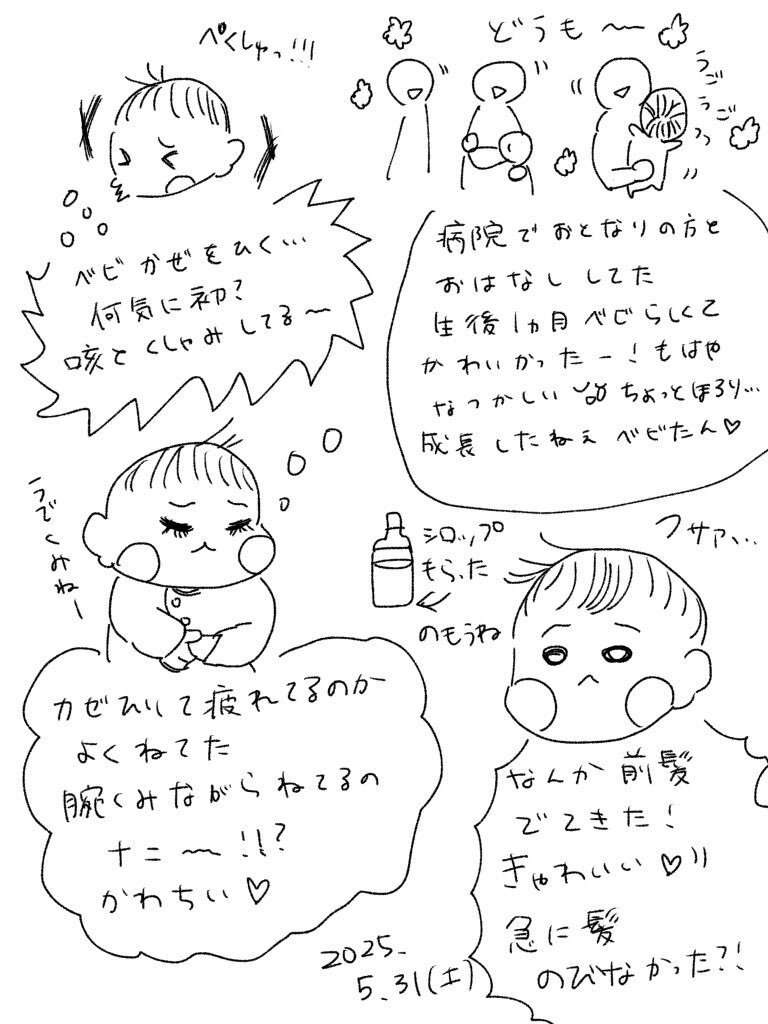 ぺくしゅっ!!!
ベビかぜをひく…
何気に初?
咳とくしゃみしてる〜
どうも〜
うご
うご
っっ
病院でおとなりの方と
おはなししてた
生後1ヵ月ベビらしくて
かわいかったー!もはや
なつかしい ちょっとほろり…
成長したねぇ ベビたん♡
うでくみねー
シロップ
もらった
のもうね
カゼひいて疲れてるのか
よくねてた
腕くみながらねてるの
ナニ〜!!?
かわちい♡
フサァ…
なんか前髪
でてきた!
きゃわいい♡))
急に髪
のびなかった?!
2025.
5.31(土)